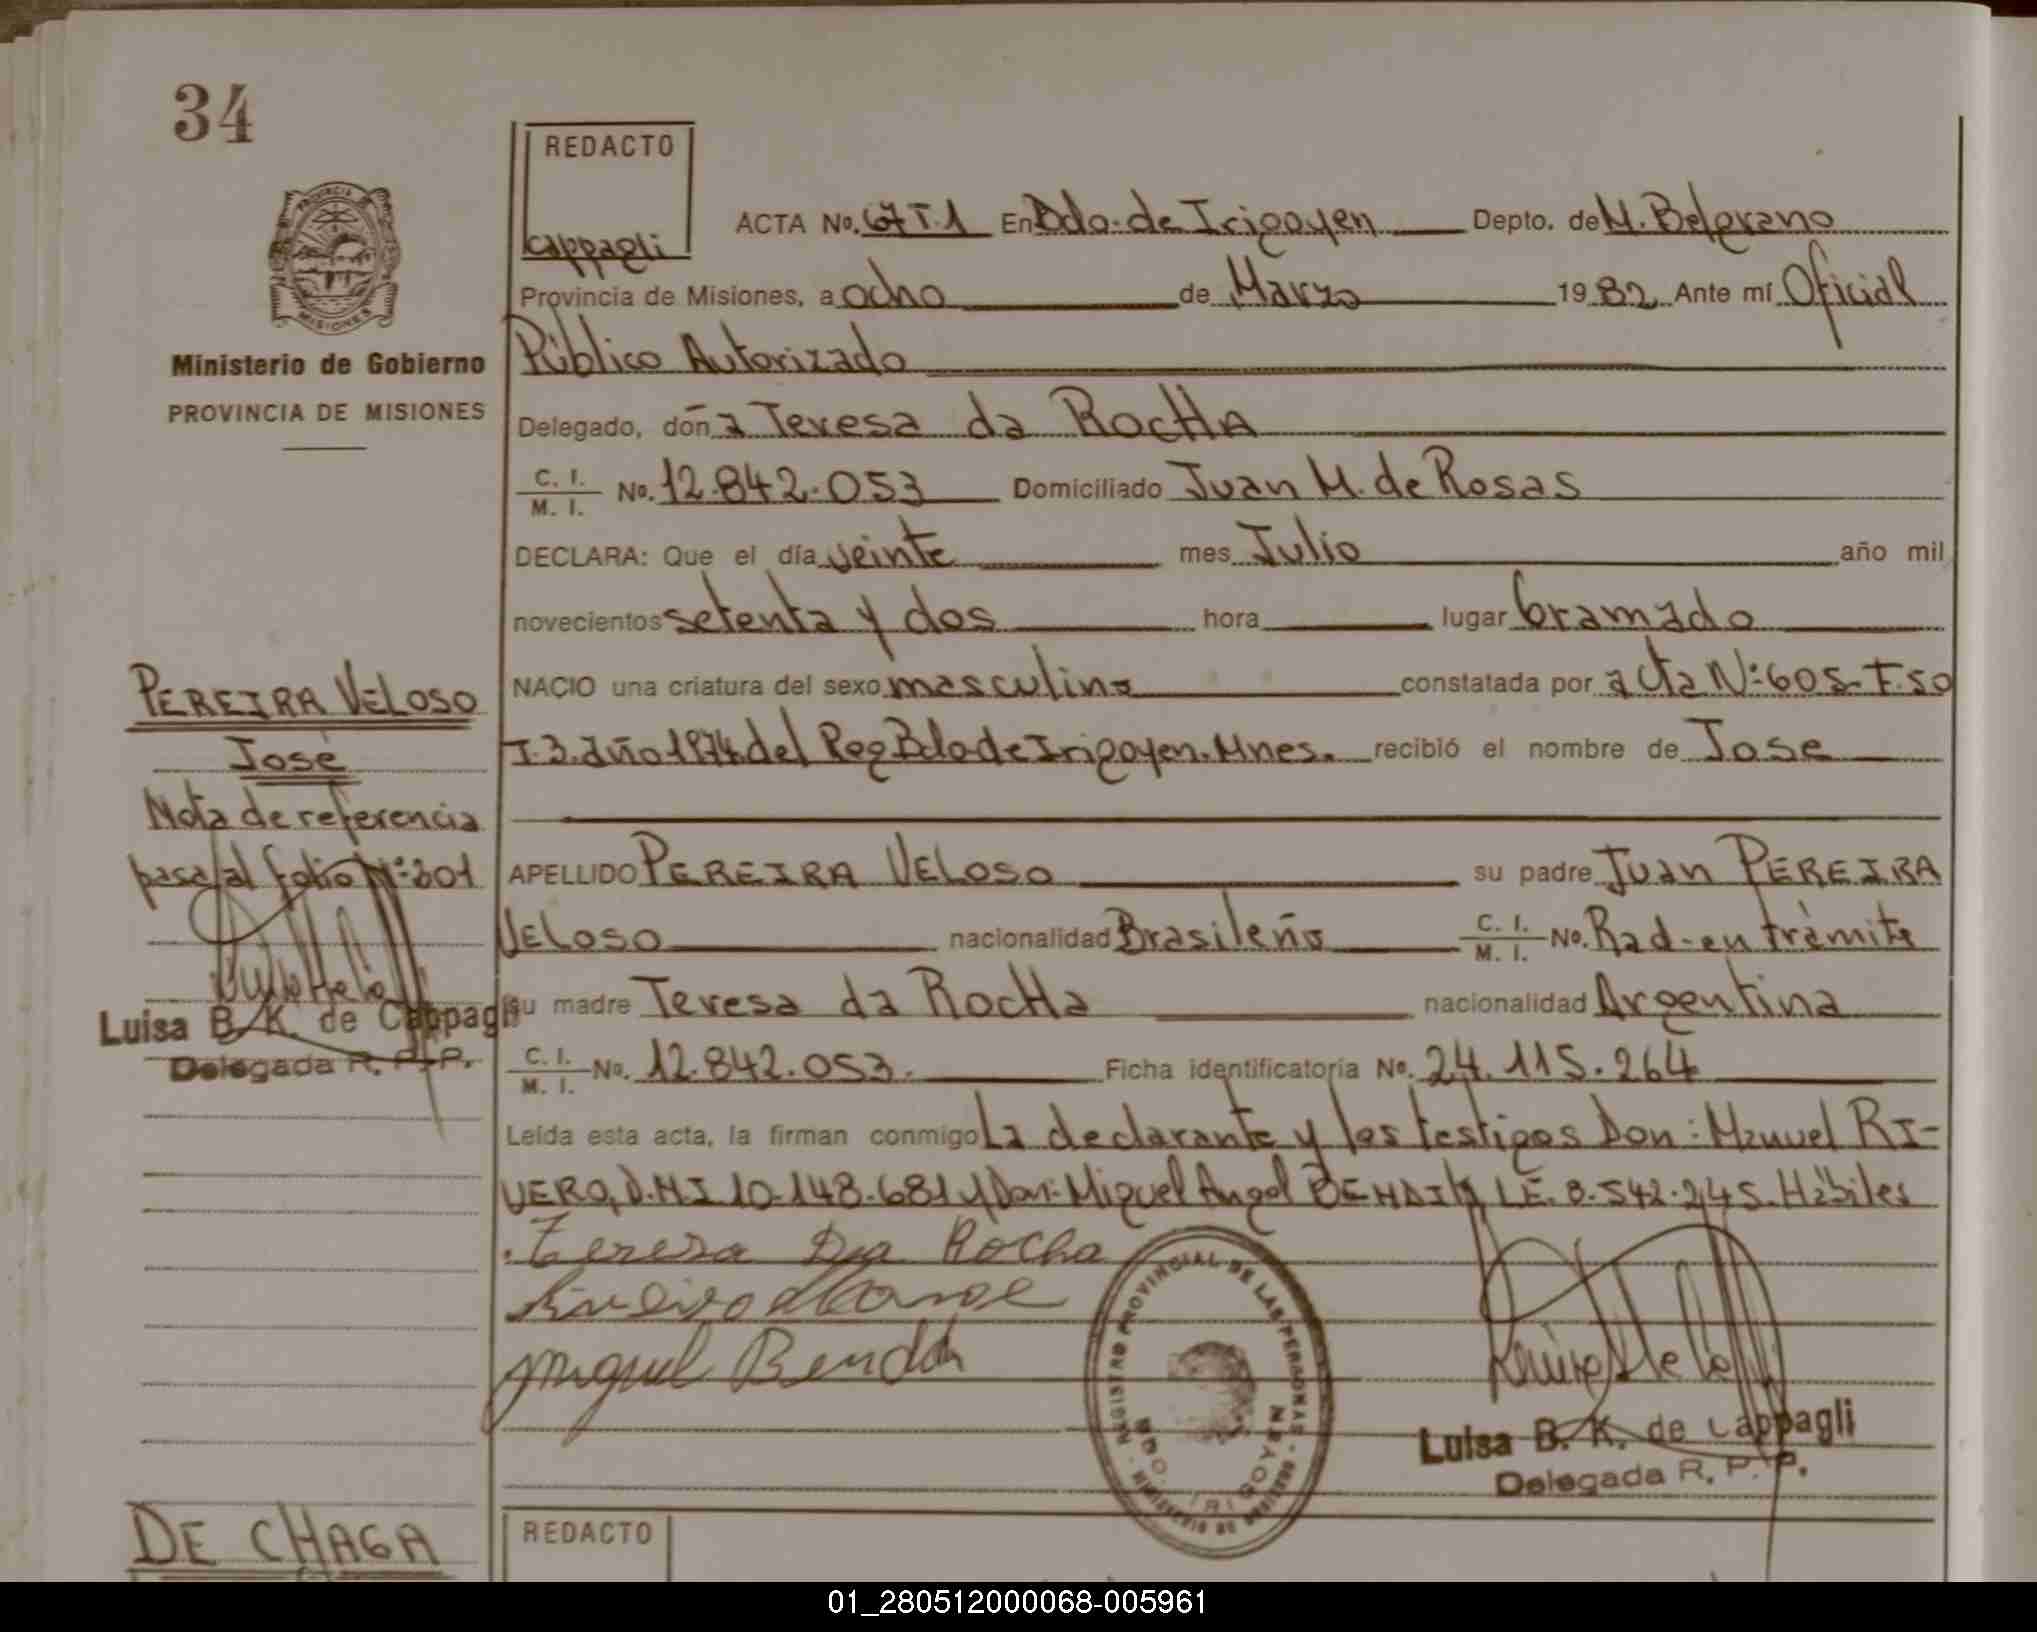 34
REDACTO
Cappagli
PROVINCIA
MISIONES
Ministerio de Gobierno
PROVINCIA DE MISIONES
ACTA No. 67 T.1 En Bdo. de Irigoyen Depto. de M. Belgrano
Provincia de Misiones, a ocho de Marzo 1982 Ante mí Oficial
Público Autorizado
Delegado, doña Teresa da RocHA
C. I. / M. I. No. 12.842.053 Domiciliado Juan M. de Rosas
DECLARA: Que el día veinte mes Julio año mil
novecientos setenta y dos hora lugar Gramado
NACIO una criatura del sexo masculino constatada por acta Nº: 605- F.50
T.3. año 1974 del Reg Bdo de Irigoyen. Mnes. recibió el nombre de Jose
APELLIDO PEREIRA VELOSO su padre Juan PEREIRA
VELOSO nacionalidad Brasileño C. I. / M. I. No. Rad-en trámite
su madre Teresa da RocHa nacionalidad Argentina
C. I. / M. I. No. 12.842.053. Ficha identificatoria No. 24.115.264
Leída esta acta, la firman conmigo La declarante y los testigos Don: Manuel RI-
VERO, D.N.I 10.148.681 y Don: Miguel Angel L.E. 8.542.245. Hábiles
Teresa Da Rocha
Miguel
PEREIRA VELOSO
José
Nota de referencia
pasa al folio Nº: 201
Luisa B. K. de Cappagli
Delegada R. P. P.
REGISTRO PROVINCIAL DE LAS PERSONAS - MINISTERIO DE GOBIERNO
BDO. IRIGOYEN
Luisa B. K. de Cappagli
Delegada R. P. P.
DE CHAGA
REDACTO
01_280512000068-005961